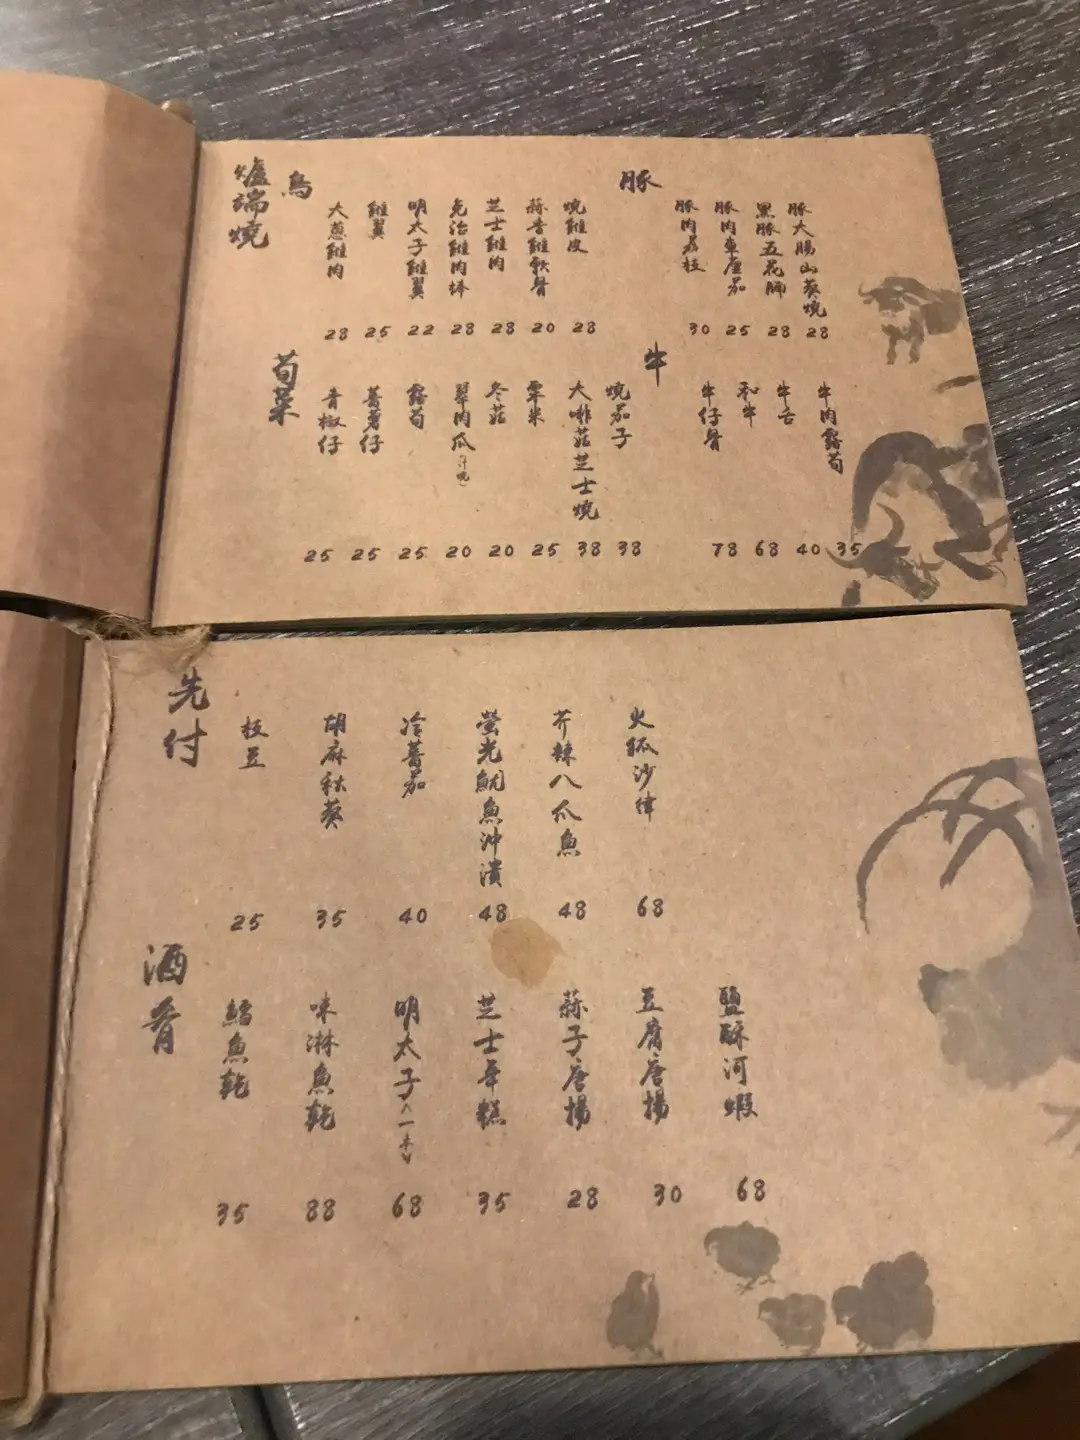 爐端燒
鳥
大蔥雞肉 28
雞翼 25
明太子雞翼 22
免治雞肉棒 28
芝士雞肉 28
蒜香雞軟骨 20
燒雞皮 28
豚
豚肉荔枝 30
豚肉車厘茄 25
黑豚五花腩 28
豚大腸山葵燒 28
荀菜
青椒仔 25
薯薯仔 25
露荀 25
翠肉瓜 20
冬菇 20
粟米 25
大啡菇芝士燒 38
燒茄子 38
牛
牛仔骨 78
和牛 68
牛舌 40
牛肉露荀 35
先付
枝豆 25
胡麻秋葵 35
冷蕃茄 40
螢光魷魚沖漬 48
芥辣八爪魚 48
火狐沙律 68
酒肴
鱈魚乾 35
味淋魚乾 88
明太子(一本) 68
芝士年糕 35
蒜子唐揚 28
豆腐唐揚 30
鹽酥河蝦 68